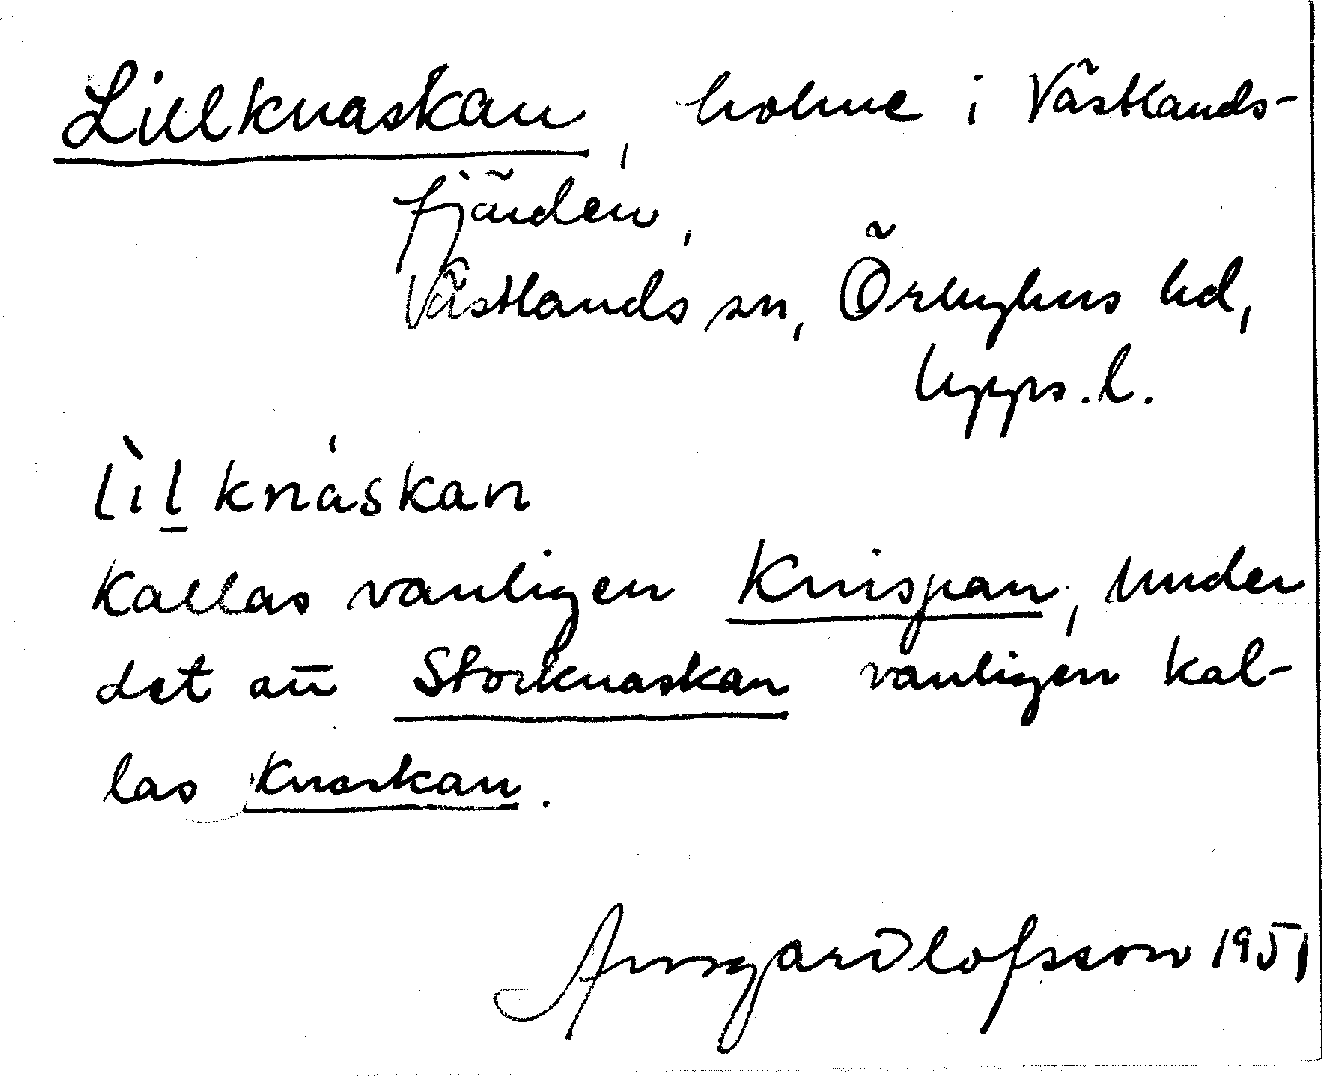 Lillknaskan, holme i Västlands-
fjärden,
Västlands sn, Örbyhus hd,
Upps. l.
lìlknáskan
Kallas vanligen Knispan, under
det att Storknaskan vanligen kal-
las Knaskan.
Olofsson 1951